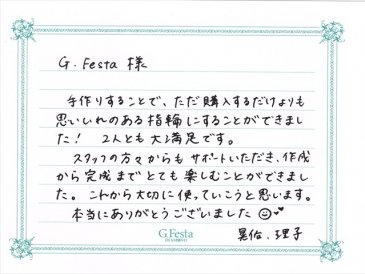 G.Festa 様
手作りすることで、ただ購入するだけよりも
思いいれのある指輪にすることができまし
た！ 2人とも大満足です。
スタッフの方々からもサポートいただき、作成
から完成までとても楽しむことができまし
た。これから大切に使っていこうと思います。
本当にありがとうございました
晃佑、理子
G.Festa